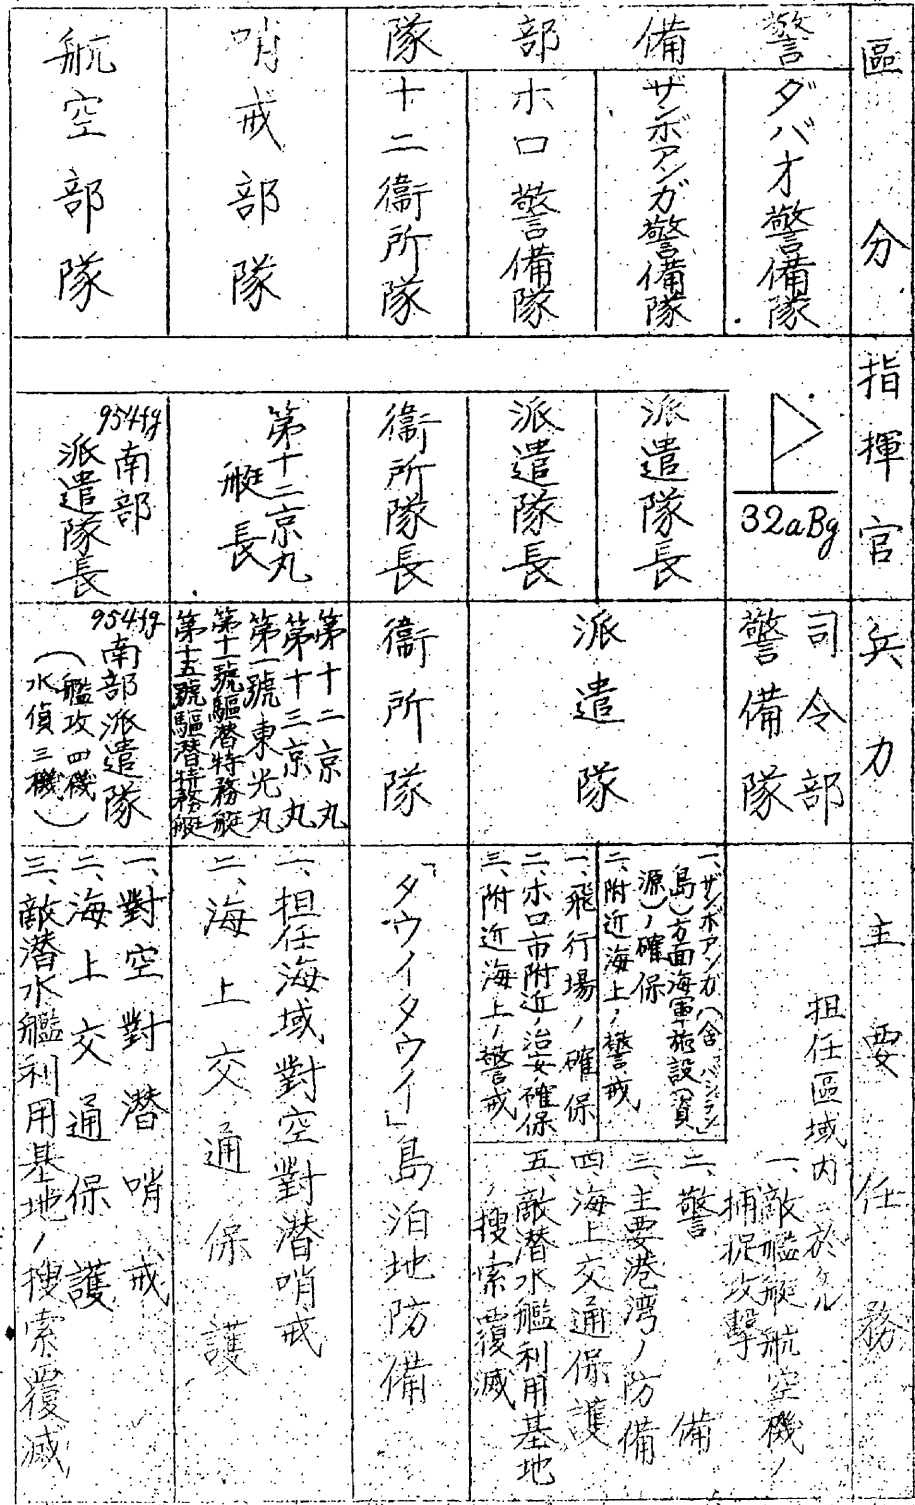 區分
指揮官
兵力
主要任務
警備部隊
ダバオ警備隊
32aBg
司令部
警備隊
担任區域内ニ於ケル
一、敵艦艇航空機ノ
捕捉攻撃
二、警備
三、主要港湾ノ防備
四、海上交通保護
五、敵潜水艦利用基地
ノ搜索覆滅
ザンボアンガ警備隊
派遣隊長
派遣隊
一、ザンボアンガ(含「バシラン」
島)方面海軍施設(資
源)ノ確保
二、附近海上ノ警戒
ホロ警備隊
派遣隊長
一、飛行場ノ確保
二、ホロ市附近ノ治安確保
三、附近海上ノ警戒
十二衞所隊
衞所隊長
衞所隊
「タウイタウイ」島泊地防備
哨戒部隊
第十二京丸
艇長
第十二京丸
第十三京丸
第一號東光丸
第十一號驅潜特務艇
第十五號驅潜特務艇
一、担任海域對空對潜哨戒
二、海上交通保護
航空部隊
954fg南部
派遣隊長
954fg南部派遣隊
(艦攻四機
水偵三機)
一、對空對潜哨戒
二、海上交通保護
三、敵潜水艦利用基地ノ搜索覆滅